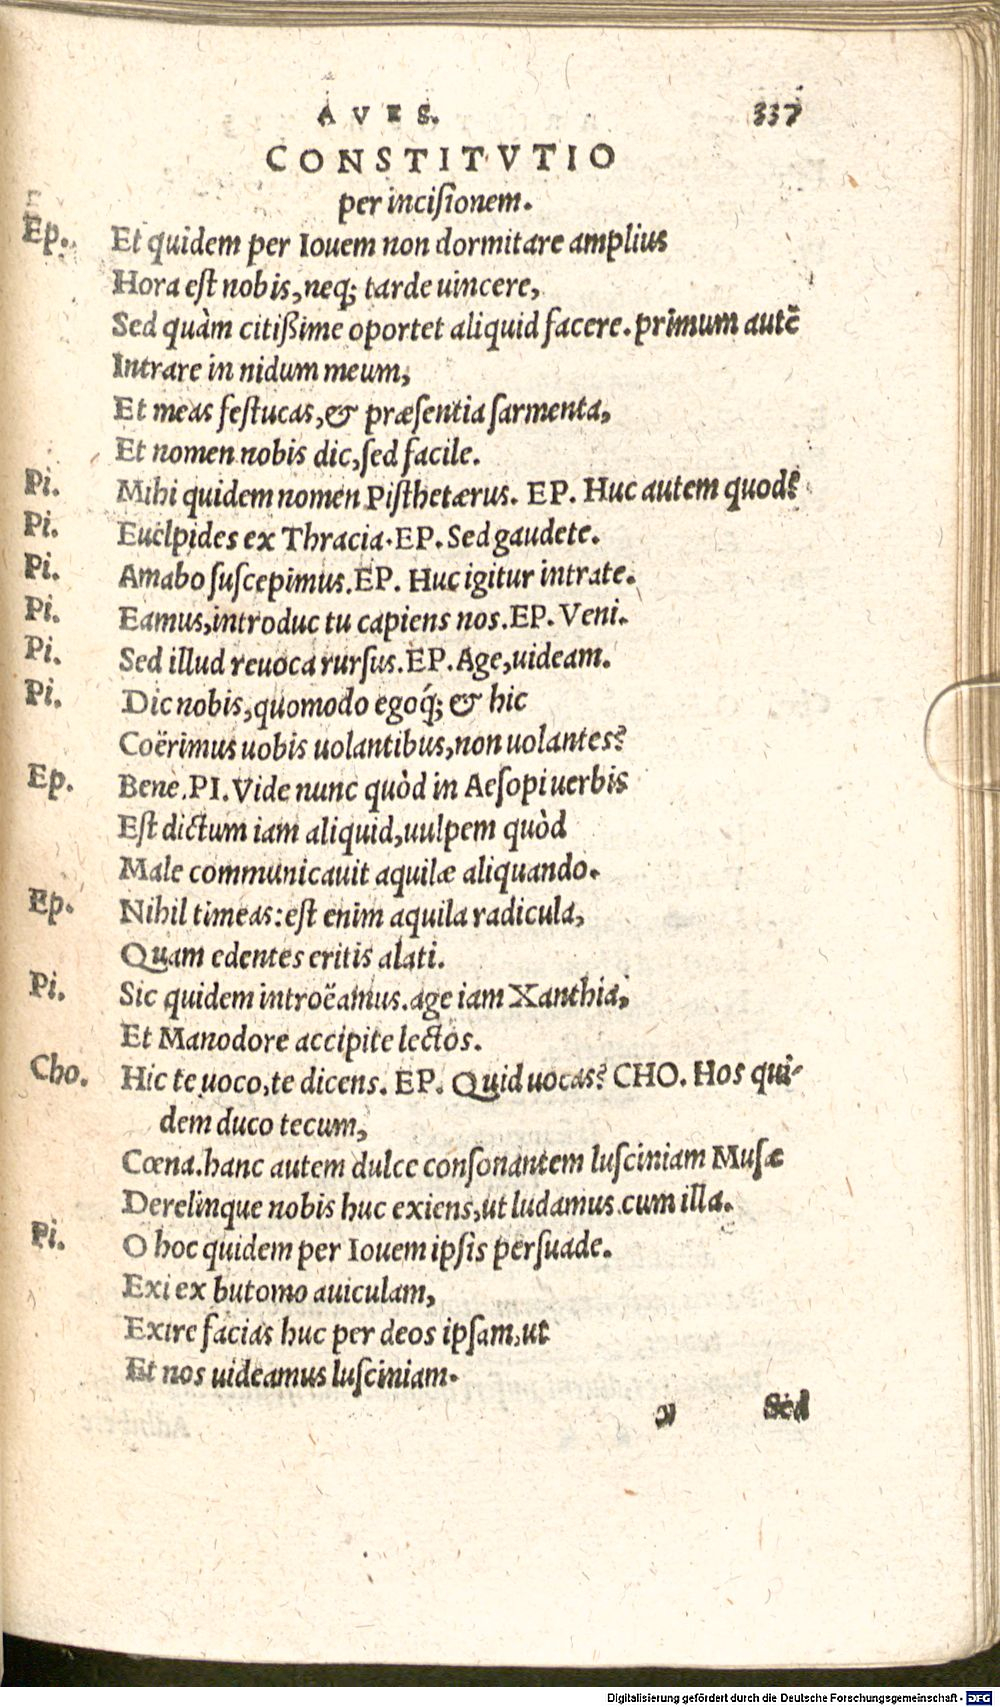 AVES. 337
CONSTITVTIO
per incisionem.
Ep. Et quidem per Iouem non dormitare amplius
Hora est nobis, neq; tarde uincere,
Sed quàm citißime oportet aliquid facere. primum autē
Intrare in nidum meum,
Et meas festucas, & præsentia sarmenta,
Et nomen nobis dic, sed facile.
Pi. Mihi quidem nomen Pisthetærus. EP. Huc autem quod?
Pi. Euelpides ex Thracia. EP. Sed gaudete.
Pi. Amabo suscepimus. EP. Huc igitur intrate.
Pi. Eamus, introduc tu capiens nos. EP. Veni.
Pi. Sed illud reuoca rursus. EP. Age, uideam.
Pi. Dic nobis, quomodo egoq́; & hic
Coërimus uobis uolantibus, non uolantes?
Ep. Bene. PI. Vide nunc quòd in Aesopi uerbis
Est dictum iam aliquid, uulpem quòd
Male communicauit aquilæ aliquando.
Ep. Nihil timeas: est enim aquila radicula,
Quam edentes eritis alati.
Pi. Sic quidem introëamus. age iam Xanthia,
Et Manodore accipite lectos.
Cho. Hic te uoco, te dicens. EP. Quid uocas? CHO. Hos qui-
dem duco tecum,
Cœna. hanc autem dulce consonantem lusciniam Musæ
Derelinque nobis huc exiens, ut ludamus cum illa.
Pi. O hoc quidem per Iouem ipsis persuade.
Exi ex butomo auiculam,
Exire facias huc per deos ipsam, ut
Et nos uideamus lusciniam.
y Sed
Digitalisierung gefördert durch die Deutsche Forschungsgemeinschaft - DFG